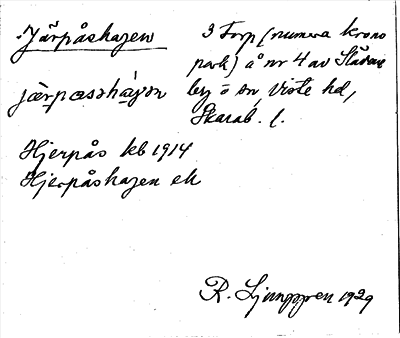 Järpåshagen
3 Torp (numera krono
park) å nr 4 av Slädene
by o sn, Viste hd,
Skarab. l.
Hjerpås kb 1914
Hjerpåshagen ek
R. Ljunggren 1929